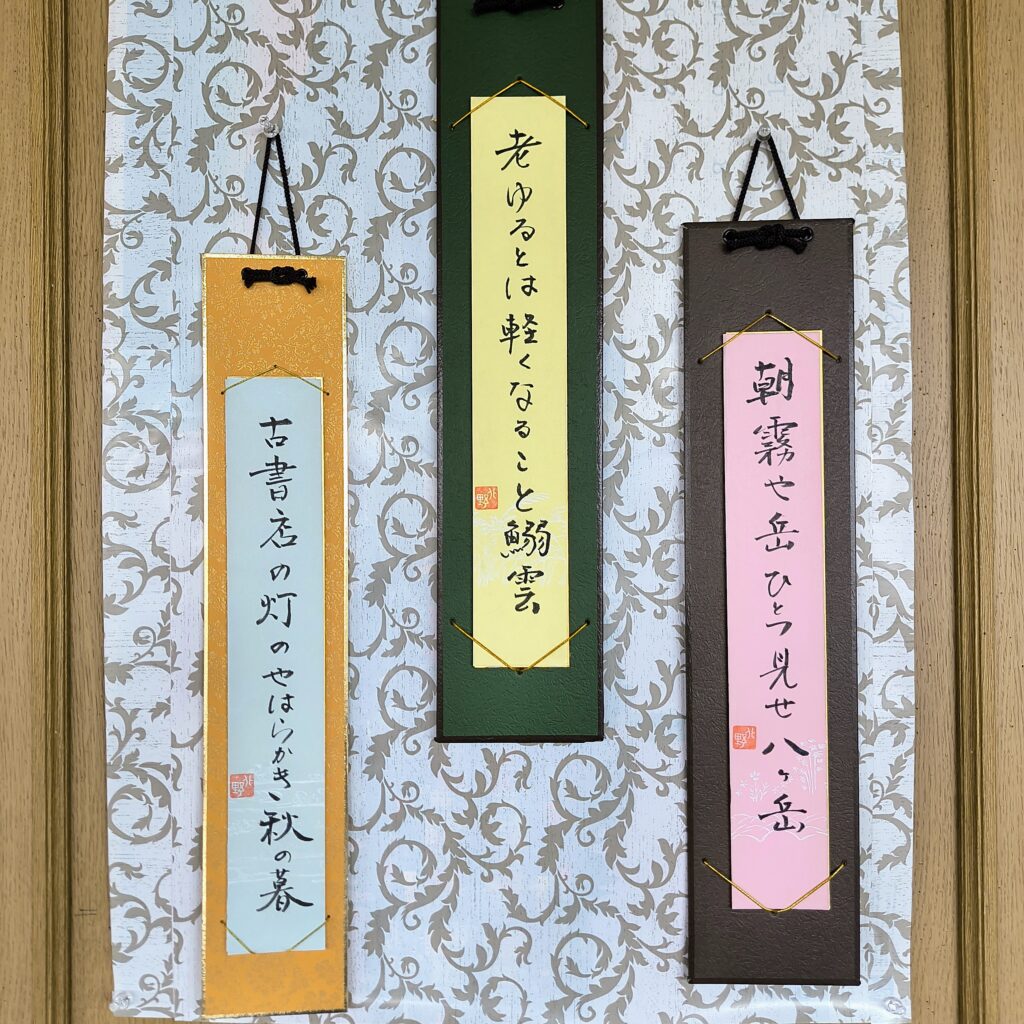 朝霧や岳ひとつ見せ八ヶ岳
老ゆるとは軽くなること鰯雲
古書店の灯のやはらかき秋の暮